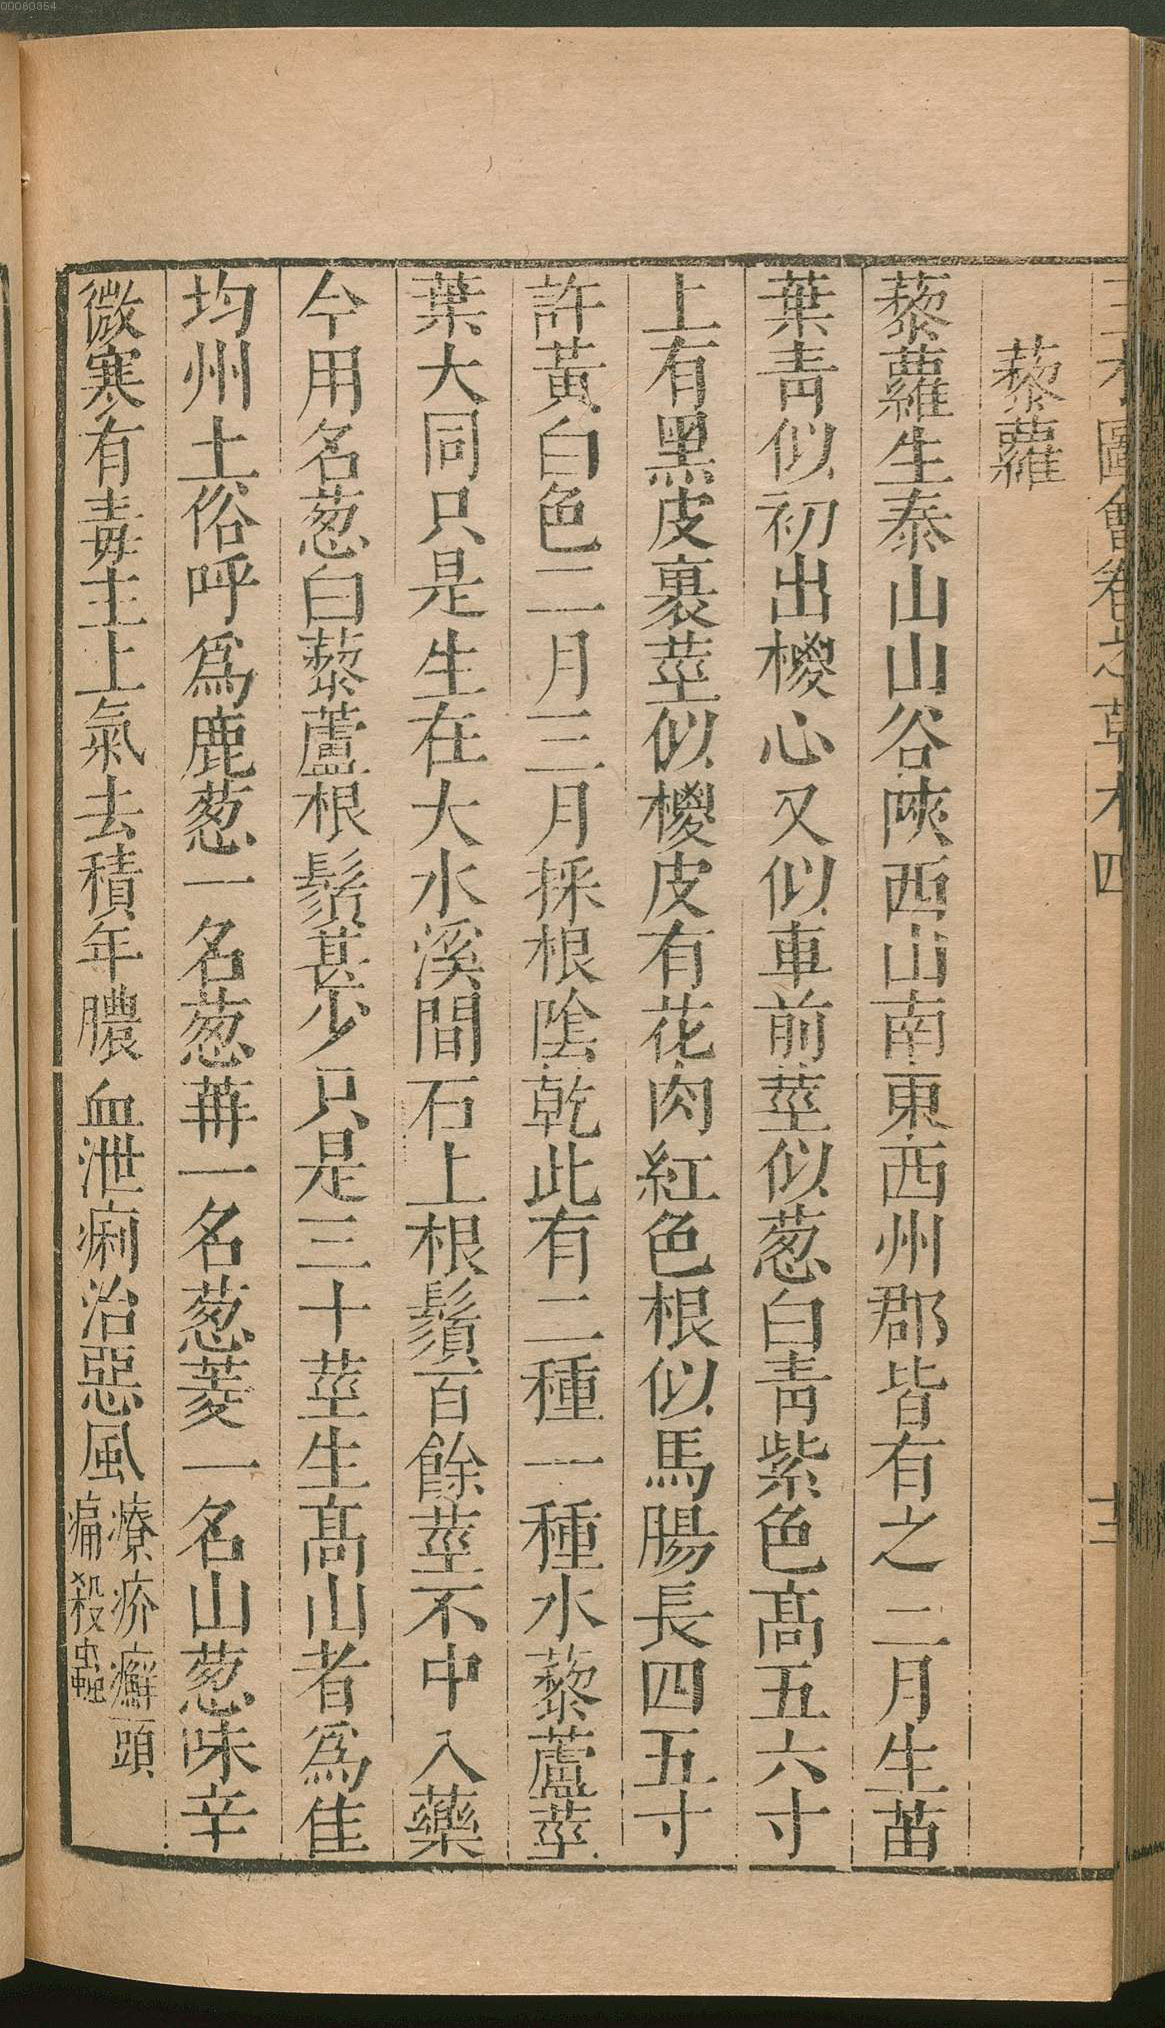 00060354
三才圖會卷之草木四
十二
藜蘿
藜蘿生泰山山谷陝西山南東西州郡皆有之二月生苗
葉青似初出椶心又似車前莖似葱白青紫色高五六寸
上有黑皮裹莖似椶皮有花肉紅色根似馬腸長四五寸
許黃白色二月三月採根陰乾此有二種一種水藜蘆莖
葉大同只是生在大水溪間石上根鬚百餘莖不中入藥
今用名葱白藜蘆根鬚甚少只是三十莖生高山者為佳
均州土俗呼為鹿葱一名葱苒一名葱菱一名山葱味辛
微寒有毒主上氣去積年膿血泄痢治惡風療疥癬頭
瘑殺蟲